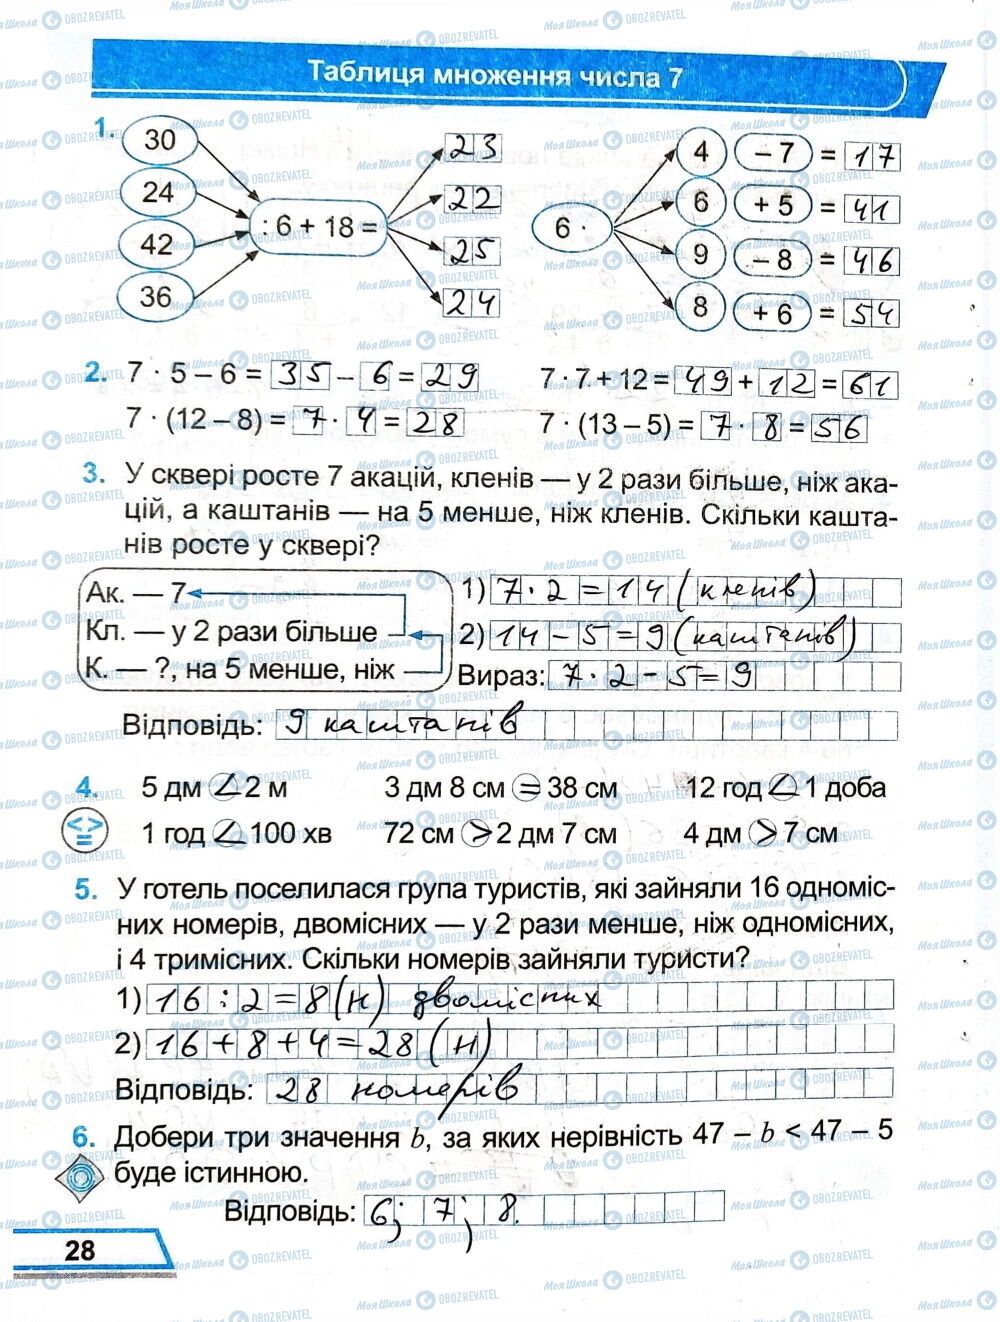 Таблиця множення числа 7
1.
30
24
42
36
: 6 + 18 =
23
22
25
24
6 ·
4 – 7 = 17
6 + 5 = 41
9 – 8 = 46
8 + 6 = 54
2. 7 · 5 – 6 = 35 – 6 = 29 7 · 7 + 12 = 49 + 12 = 61
7 · (12 – 8) = 7 · 4 = 28 7 · (13 – 5) = 7 · 8 = 56
3. У сквері росте 7 акацій, кленів — у 2 рази більше, ніж ака-
цій, а каштанів — на 5 менше, ніж кленів. Скільки кашта-
нів росте у сквері?
Ак. — 7
Кл. — у 2 рази більше
К. — ?, на 5 менше, ніж
1) 7 · 2 = 14 (кленів)
2) 14 – 5 = 9 (каштанів)
Вираз: 7 · 2 – 5 = 9
Відповідь: 9 каштанів
4. 5 дм < 2 м 3 дм 8 см = 38 см 12 год < 1 доба
<>
=
1 год < 100 хв 72 см > 2 дм 7 см 4 дм > 7 см
5. У готель поселилася група туристів, які зайняли 16 одноміс-
них номерів, двомісних — у 2 рази менше, ніж одномісних,
і 4 тримісних. Скільки номерів зайняли туристи?
1) 16 : 2 = 8 (н) двомісних
2) 16 + 8 + 4 = 28 (н)
Відповідь: 28 номерів
6. Добери три значення b, за яких нерівність 47 – b < 47 – 5
буде істинною.
Відповідь: 6; 7; 8.
28
МояШкола OBOZREVATEL